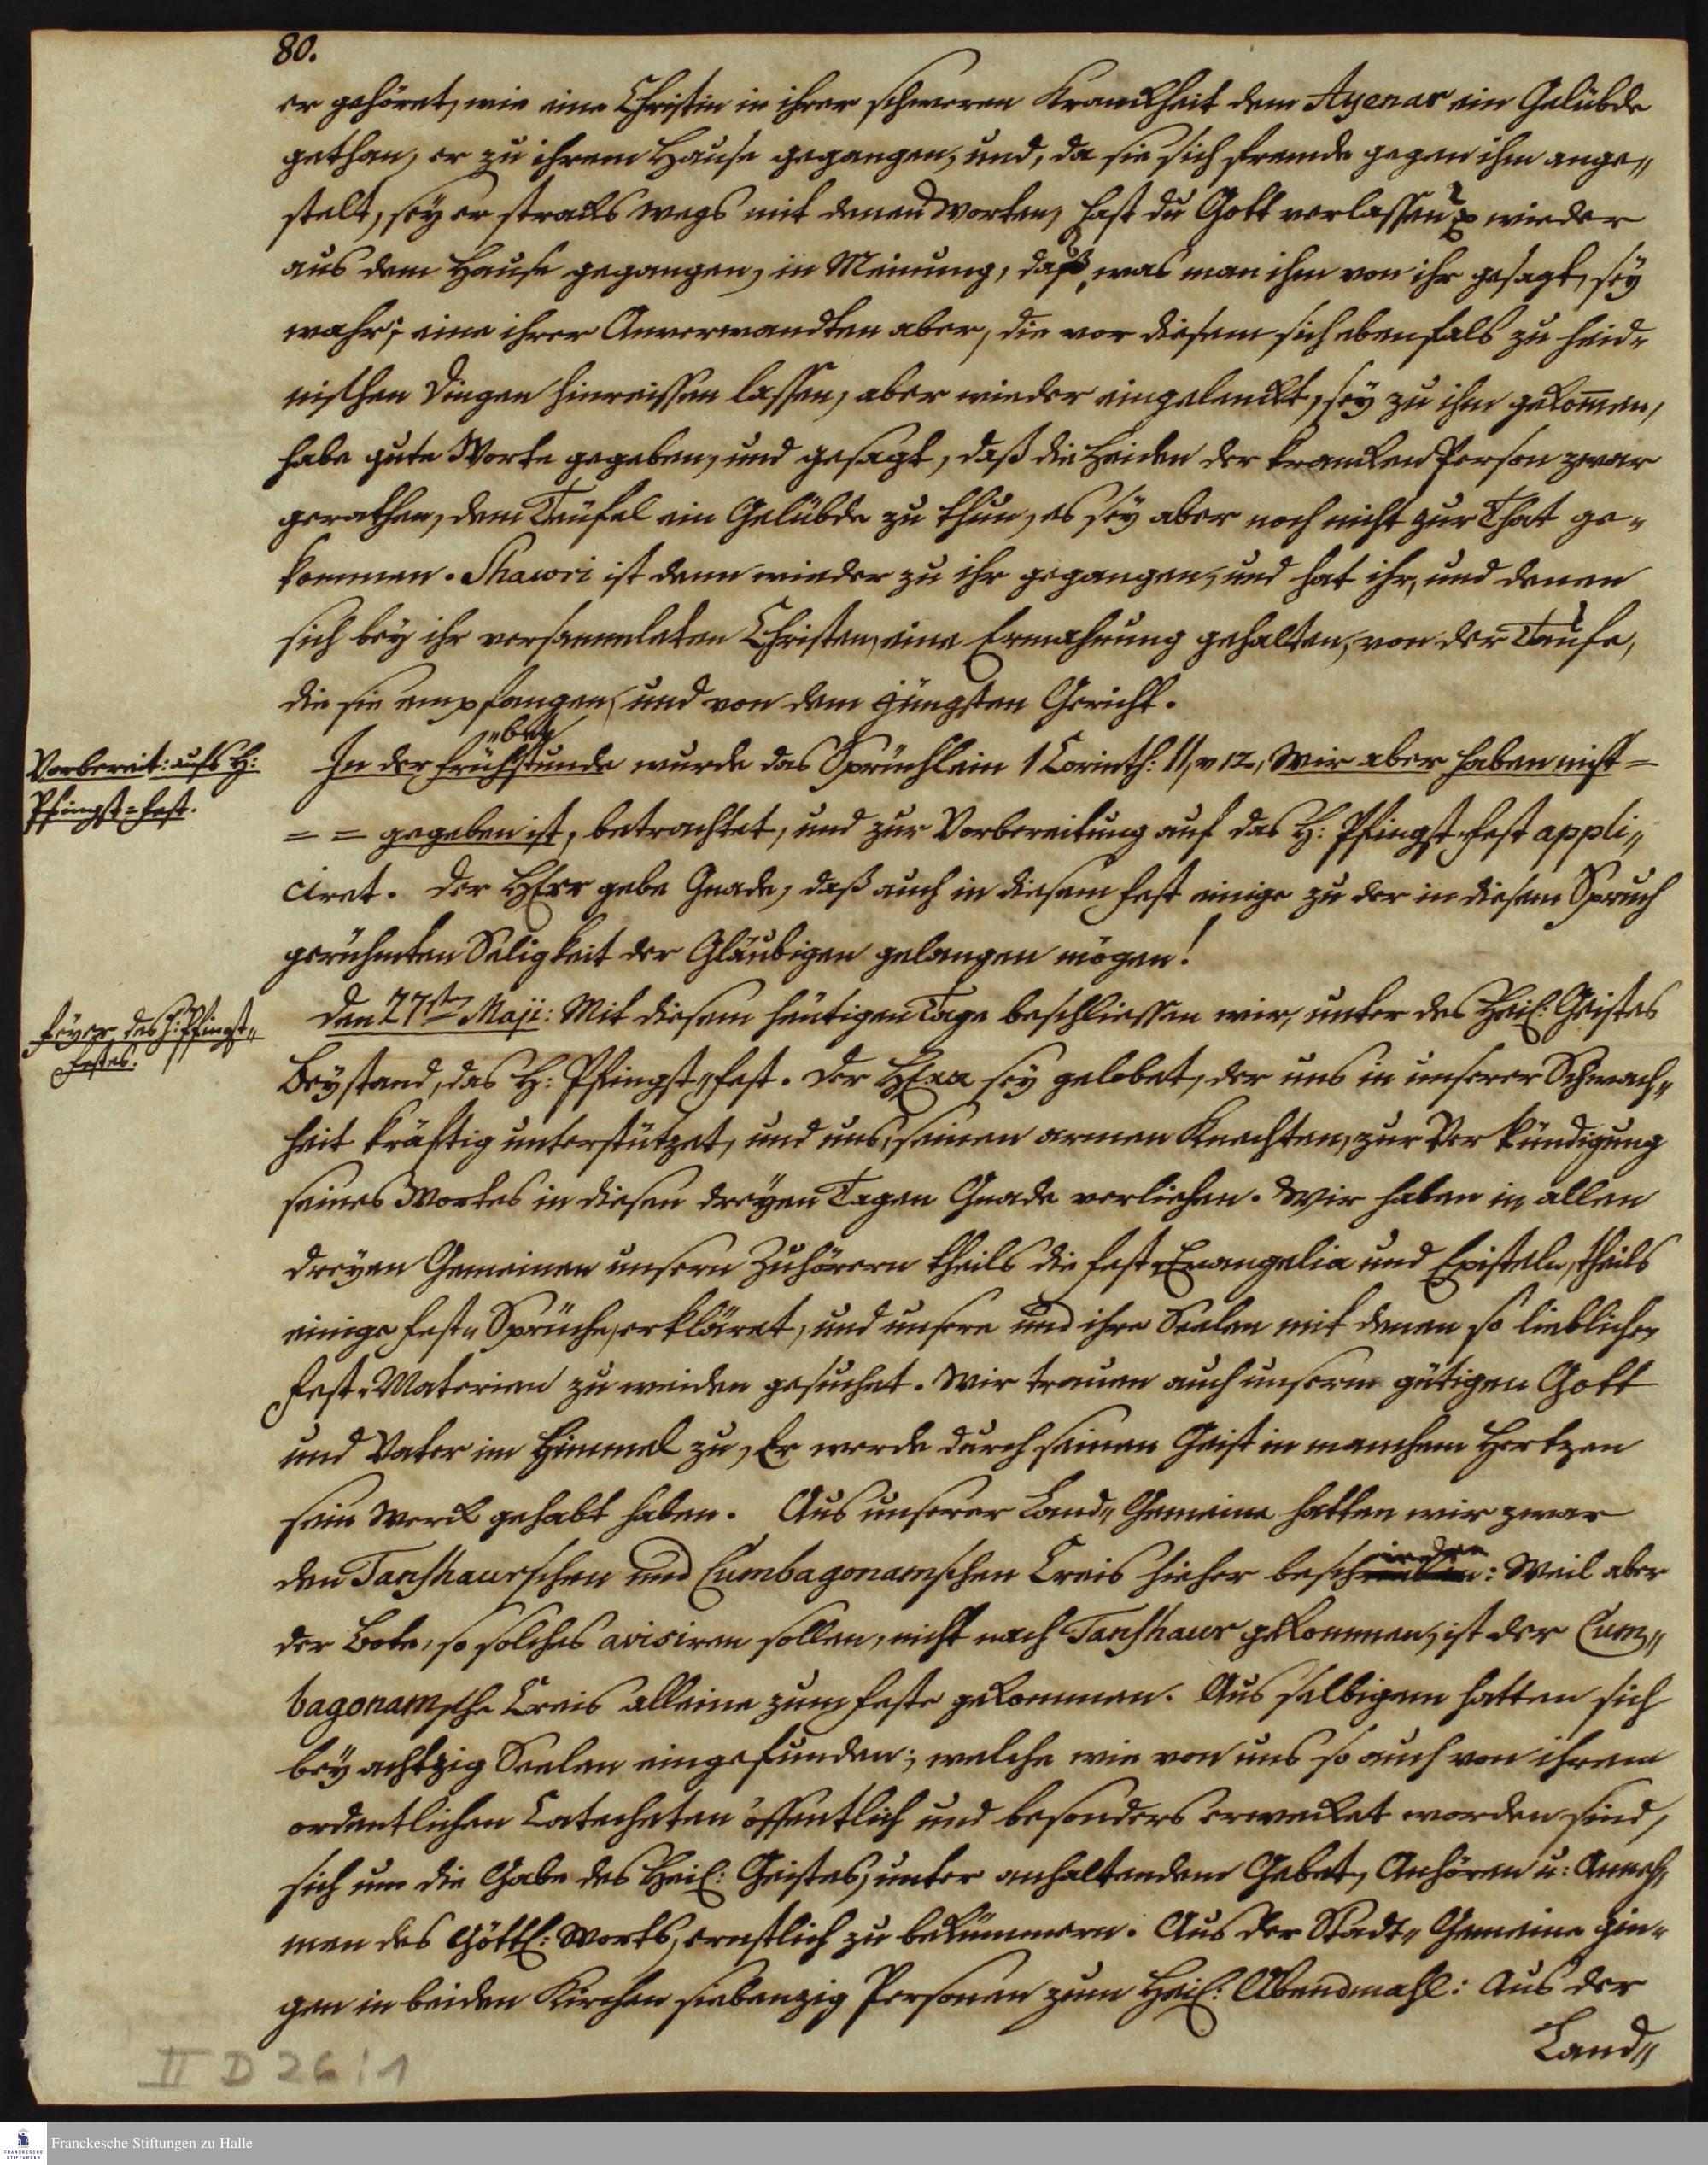 80.
er gehöret, wie eine Christin in ihrer schweren Kranckheit dem Ayenar ein Gelübde
gethan, er zu ihrem Hause gegangen, und, da sie sich fremde gegen ihm ange„
stelt, sey er stracks wegs mit denen Worten, hast du Gott verlassen? wieder
aus dem Hause gegangen, in Meinung, daß, was man ihm von ihr gesagt, sey
wahr; eine ihrer Anverwandten aber, die vor diesem sich ebenfals zu heid„
nischen Dingen hinreissen lassen, aber wieder eingelenckt, sey zu ihm gekom̄en,
habe gute Worte gegeben, und gesagt, daß die Heiden der krancken Person zwar
gerathen, dem Teufel ein Gelübde zu thun, es sey aber noch nicht zur That ge„
kommen. Shawri ist denn wieder zu ihr gegangen, und hat ihr, und denen
sich bey ihr versammleten Christen, eine Ermahnung gehalten, von der Taufe,
die sie empfangen, und von dem jüngsten Gericht.
Vorbereit: aufs H:
Pfingst=Fest.
In der Früh„betstunde wurde das Sprüchlein 1 Corinth: 11, v 12, Wir aber haben nicht =
= = gegeben ist, betrachtet, und zur Vorbereitung auf das H: Pfingst„fest appli„
ciret. Der HErr gebe Gnade, daß auch in diesem Fest einige zu der in diesem Spruch
gerühmten Seligkeit der Gläubigen gelangen mögen!
Feyer des H: Pfingst„
festes.
Den 27sten Maji: Mit diesem heutigen Tage beschliessen wir, unter des Heil: Geistes
Beystand, das H: Pfingst„fest. Der HErr sey gelobet, der uns in unserer Schwach„
heit kräftig unterstützet, und uns, seinen armen Knechten, zur Verkündigung
seines Wortes in diesen dreyen Tagen Gnade verliehen. Wir haben in allen
dreyen Gemeinen unsern Zuhörern theils die Fest„Evangelia und Episteln, theils
einige Fest„Sprüche, erkläret, und unsere und ihre Seelen mit denen so lieblichen
Fest„Materien zu weiden gesuchet. Wir trauen auch unserm gütigen Gott
und Vater im Himmel zu, Er werde durch seinen Geist in manchem Hertzen
sein Werck gehabt haben. Aus unserer Land„Gemeine hatten wir zwar
den Tanshaurschen und Cumbagonamschen Creis hieher beschieden: Weil aber
der Bote, so solches avisiren sollen, nicht nach Tanshaur gekommen, ist der Cum„
bagonamsche Creis alleine zum Feste gekommen. Aus selbigem hatten sich
bey achtzig Seelen eingefunden; welche wie von uns so auch von ihrem
ordentlichen Catecheten öffentlich und besonders erwecket worden sind,
sich um die Gabe des Heil: Geistes, unter anhaltendem Gebet, Anhören u: Anneh„
men des Göttl: Worts, ernstlich zu bekümmern. Aus der Stadt„Gemeine gin„
gen in beiden Kirchen siebenzig Personen zum Heil: Abendmahl: Aus der
Land„
II D 26:1
FRANCKESCHE STIFTUNGEN
Franckesche Stiftungen zu Halle